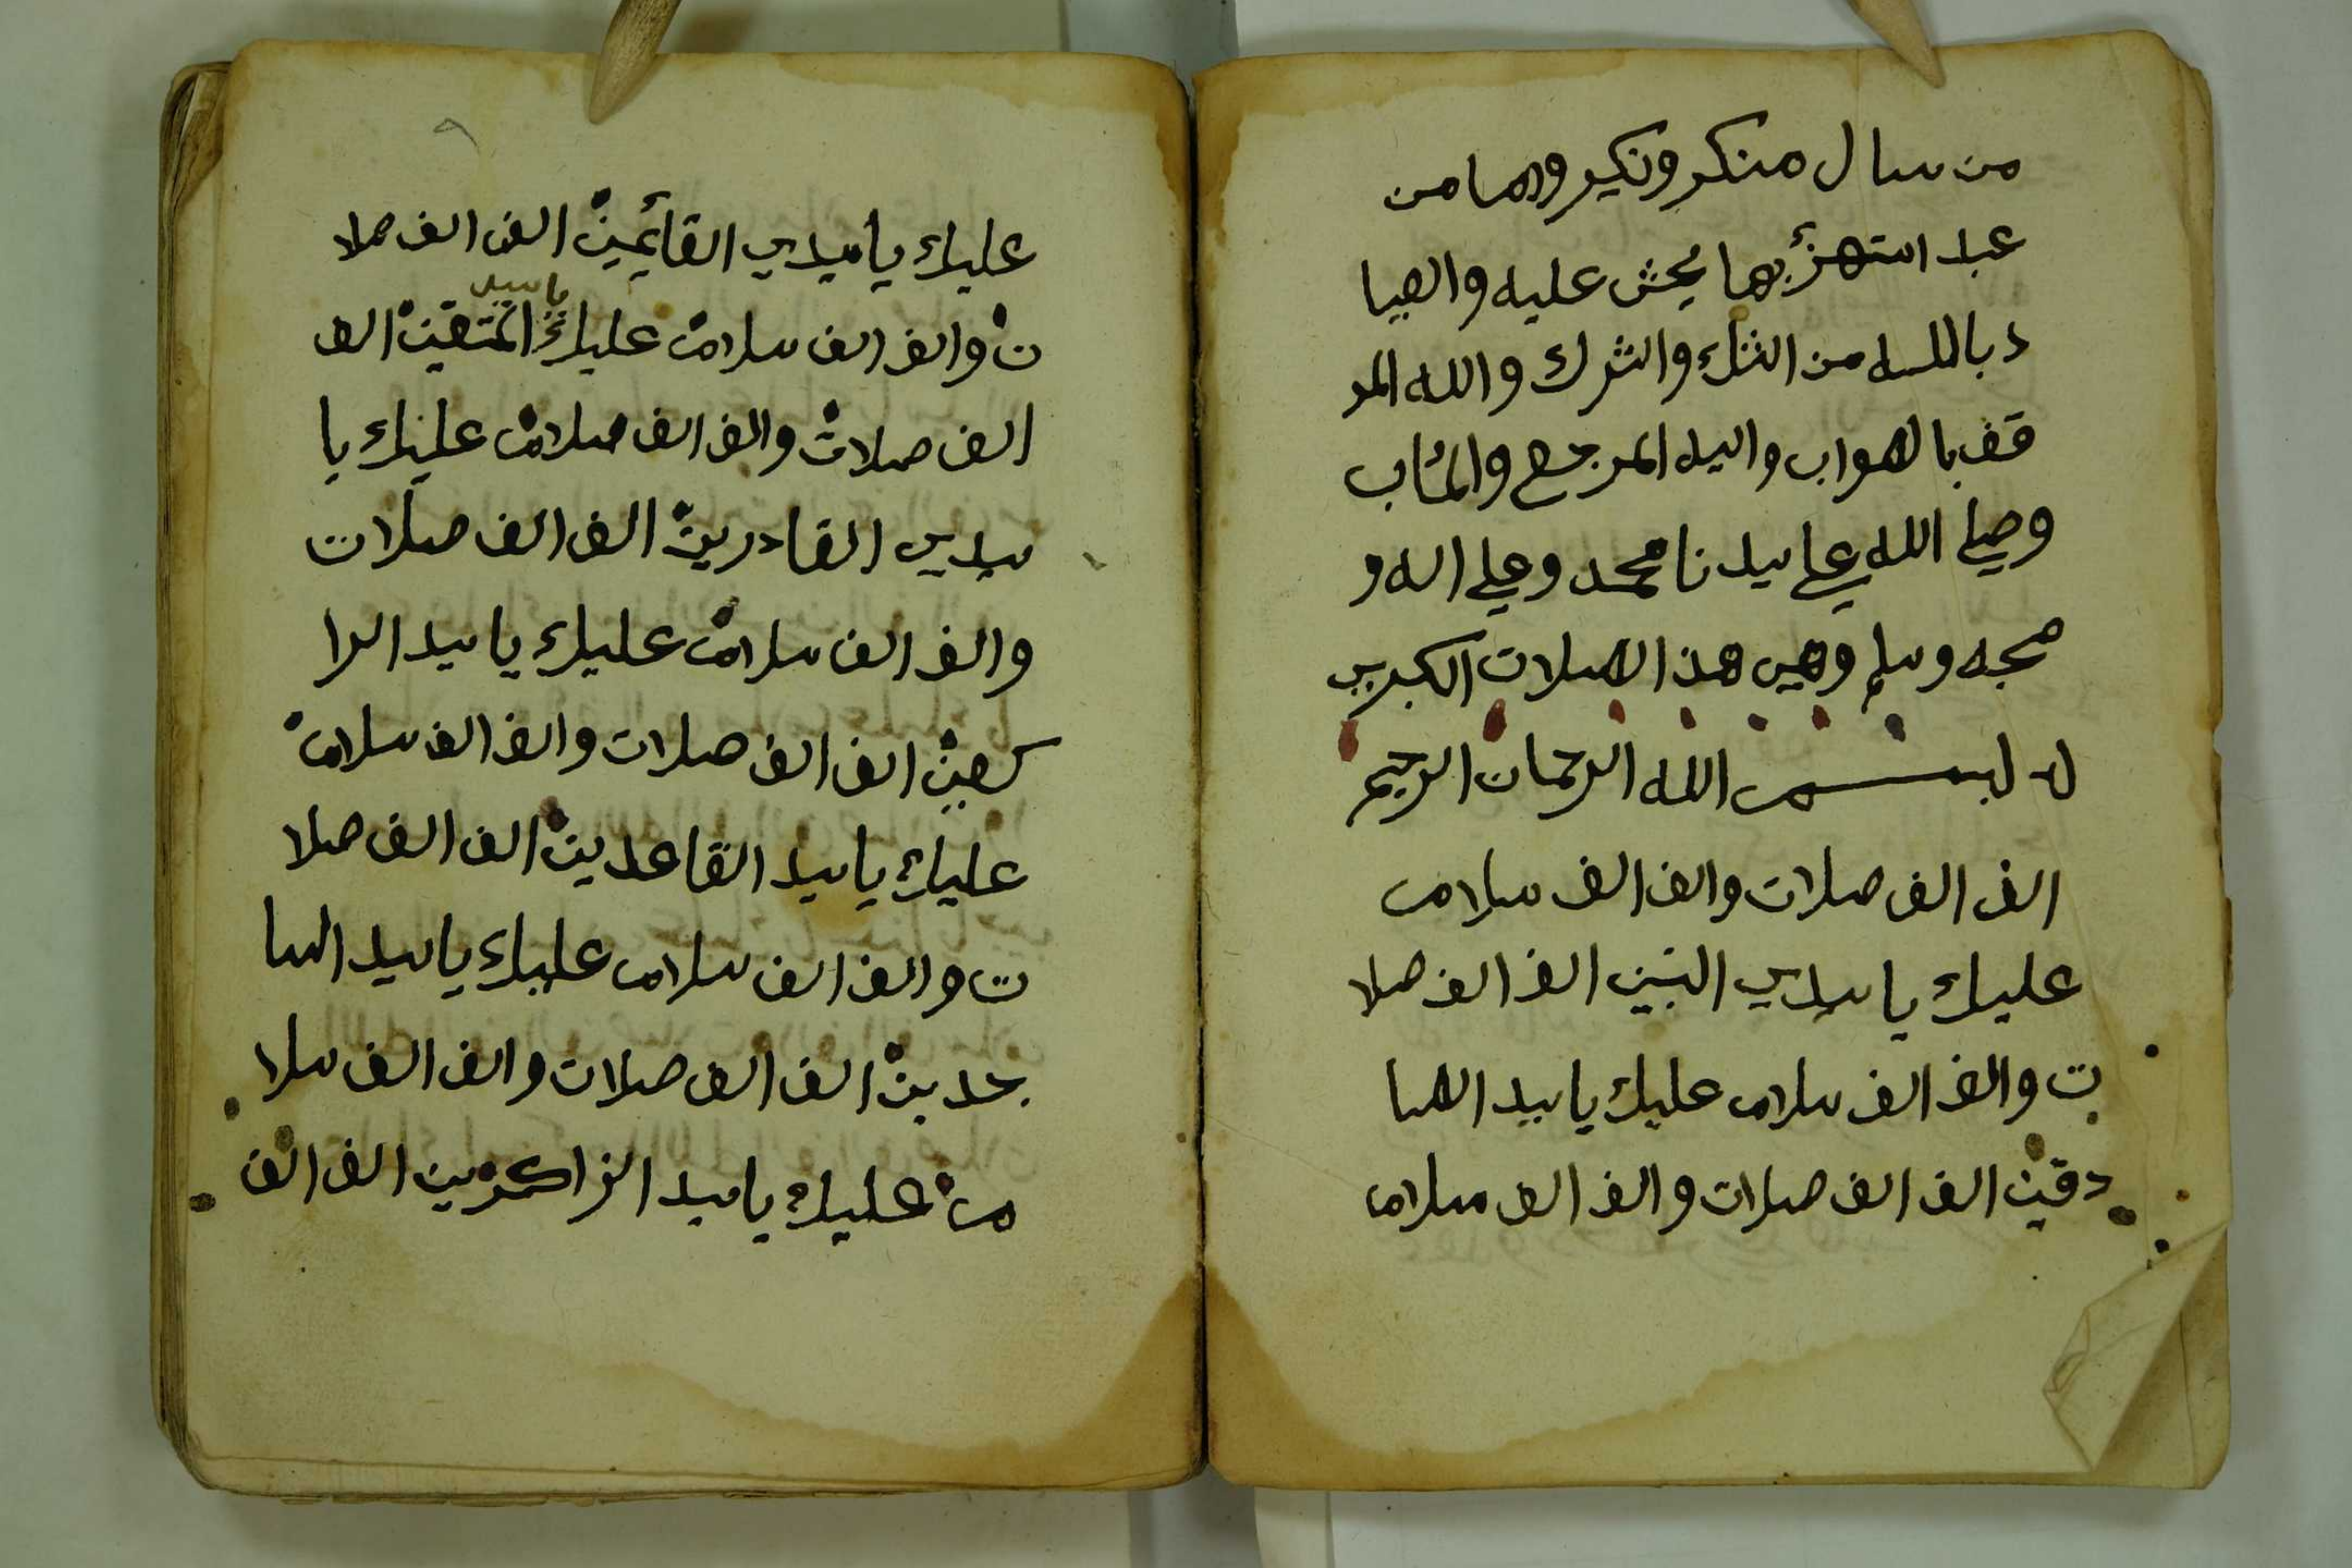 من سال منكر ونكير واما من
عبد استهزئ بها يخش عليه والعيا
ذ بالله من الشك والشرك والله المو
فق بالصواب واليه المرجع والمئاب
وصلي الله علي سيدنا محمد وعلي اله و
صحبه وسلم وهي هذ الصلات الكبري
بسم الله الرحمان الرحيم
الف الف صلات والف الف سلام
عليك يا سيدي النبين الف الف صلا
ت والف الف سلام عليك يا سيد الصا
دقين الف الف صلات والف الف سلام
عليك يا سيدي القائمين الف الف صلا
ت والف الف سلام عليك يا سيد المتقين الف
الف صلات والف الف سلام عليك يا
سيدي القادرين الف الف صلات
والف الف سلام عليك يا سيد الرا
كعين الف الف صلات والف الف سلام
عليك يا سيد القاعدين الف الف صلا
ت والف الف سلام عليك يا سيد السا
جدين الف الف صلات والف الف سلا
م عليك يا سيد الزاكرين الف الف